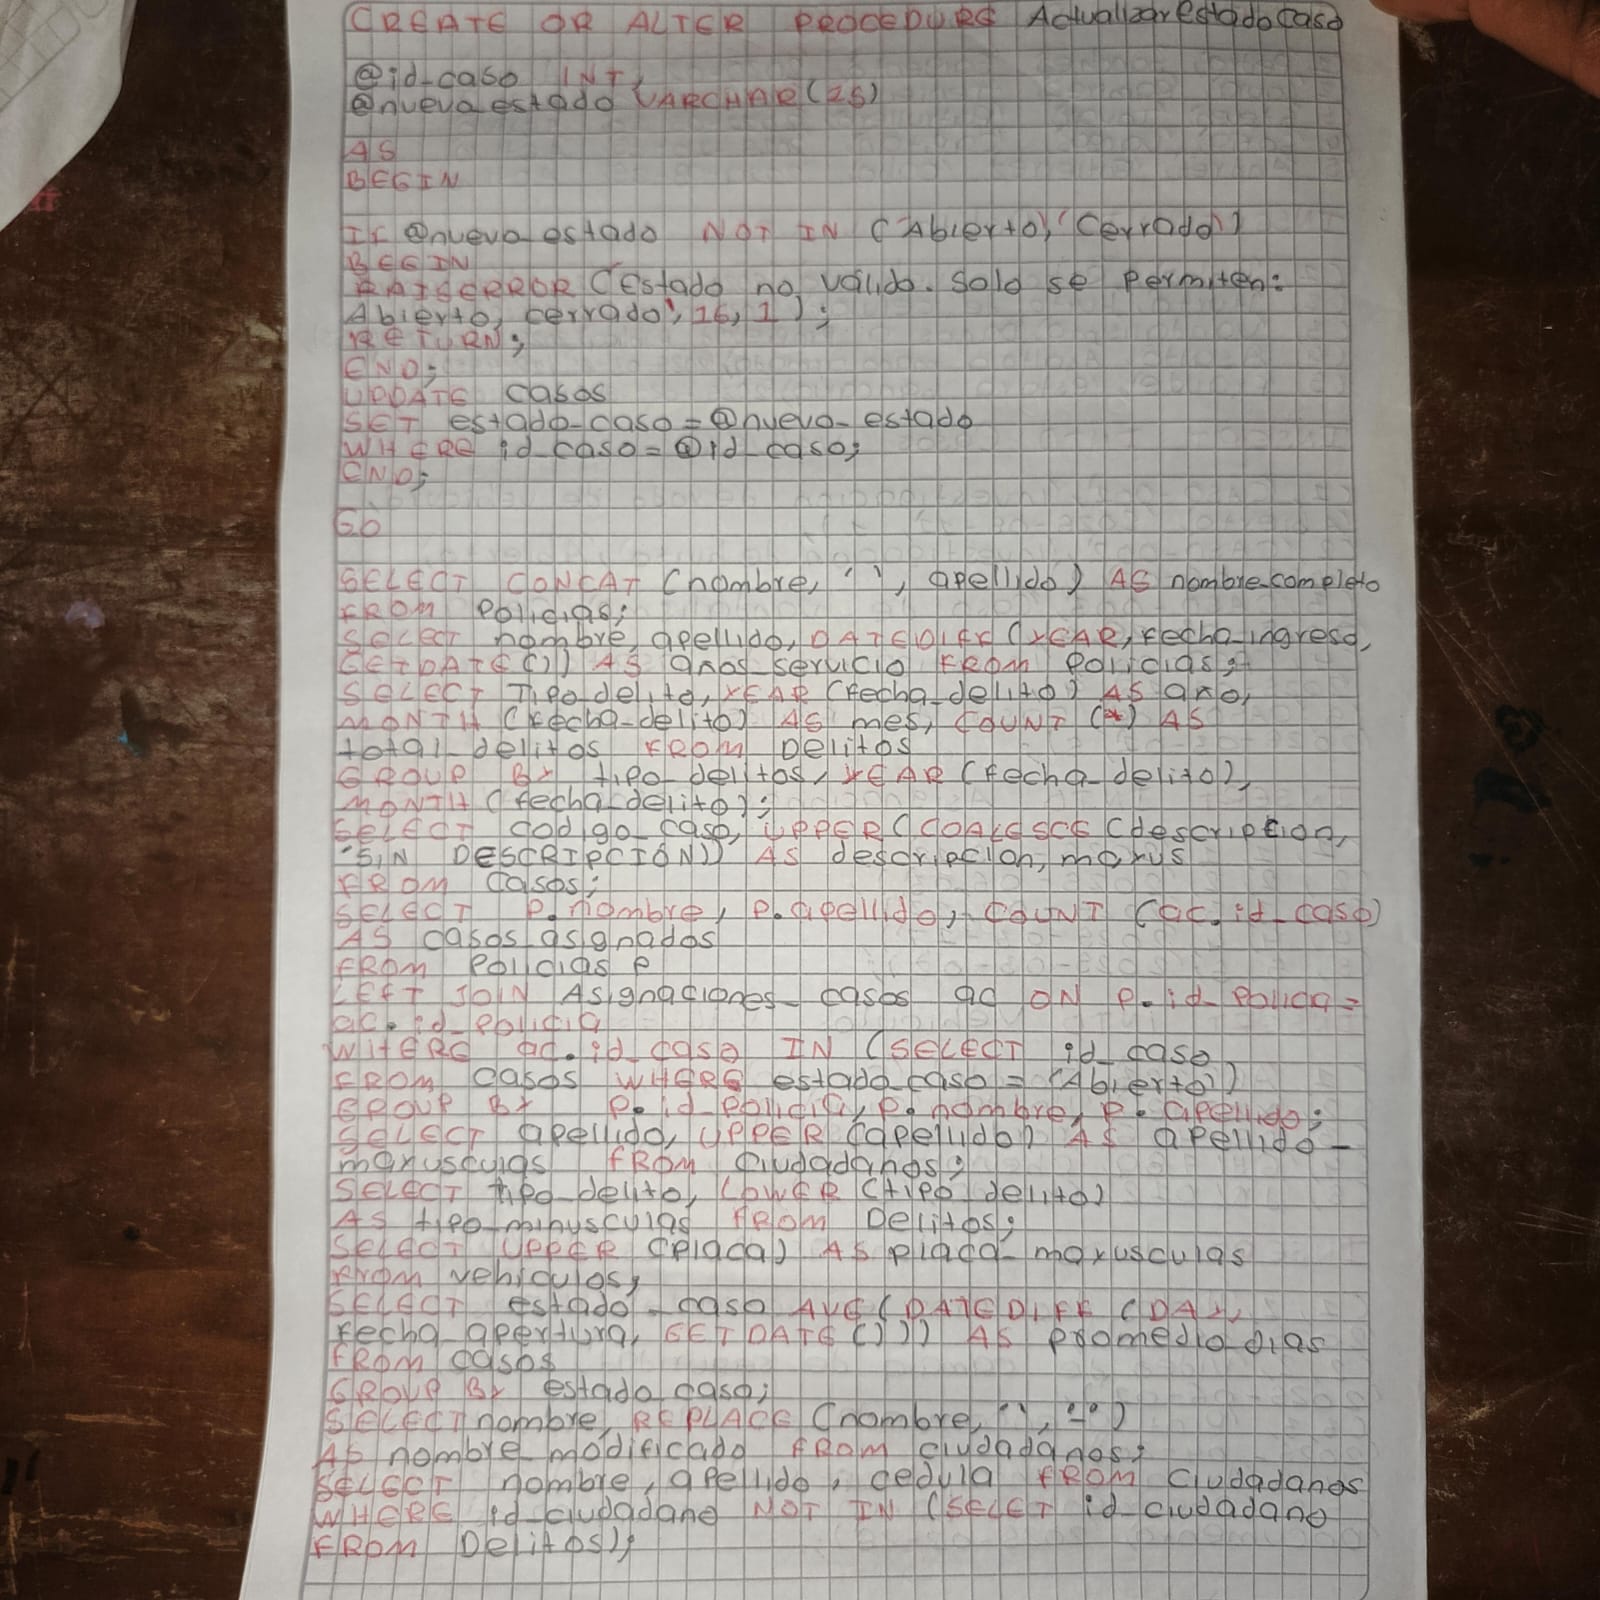 CREATE OR ALTER PROCEDURE Actualizarestadocaso
@id_caso INT,
@nuevo_estado VARCHAR(25)
AS
BEGIN
IF @nuevo_estado NOT IN ('Abierto', 'Cerrado')
BEGIN
RAISERROR ('Estado no válido. Solo se permiten:
Abierto, cerrado', 16, 1);
RETURN;
END;
UPDATE casos
SET estado_caso = @nuevo_estado
WHERE id_caso = @id_caso;
END;
GO
SELECT CONCAT (nombre, ' ', apellido) AS nombre_completo
FROM Policias;
SELECT nombre, apellido, DATEDIFF (YEAR, fecha_ingreso,
GETDATE()) AS anos_servicio FROM Policias;
SELECT Tipo_delito, YEAR (fecha_delito) AS ano,
MONTH (fecha_delito) AS mes, COUNT (*) AS
total_delitos FROM Delitos
GROUP BY tipo_delitos, YEAR (fecha_delito),
MONTH (fecha_delito);
SELECT codigo_caso, UPPER (COALESCE (descripcion,
'SIN DESCRIPCIÓN')) AS descripcion_mayus
FROM Casos;
SELECT p.nombre, p.apellido, COUNT (ac.id_caso)
AS casos_asignados
FROM Policias p
LEFT JOIN Asignaciones_casos ac ON p.id_policia =
ac.id_policia
WHERE ac.id_caso IN (SELECT id_caso
FROM casos WHERE estado_caso = 'Abierto')
GROUP BY p.id_policia, p.nombre, p.apellido;
SELECT apellido, UPPER (apellido) AS apellido_
mayusculas FROM Ciudadanos;
SELECT tipo_delito, LOWER (tipo_delito)
AS tipo_minusculas FROM Delitos;
SELECT UPPER (placa) AS placa_mayusculas
From vehiculos;
SELECT estado_caso AVG (DATEDIFF (DAY,
fecha_apertura, GETDATE())) AS promedio_dias
FROM casos
GROUP BY estado_caso;
SELECT nombre, REPLACE (nombre, ' ', '-')
AS nombre_modificado FROM ciudadanos;
SELECT nombre, apellido, cedula FROM ciudadanos
WHERE id_ciudadano NOT IN (SELECT id_ciudadano
FROM Delitos);